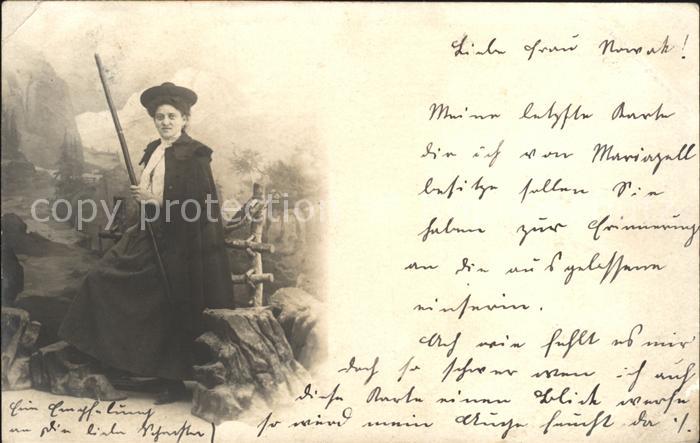 Liebe Frau Nowak!
Meine letzte Karte
die ich von Mariazell
besitze sollen Sie
haben zur Erinnerung
an die ausgelassene
Ach wie fehlt es mir
doch so schwer wen ich auf
diese Karte einen Blick werfe
so wird mein Auge feucht da :/.
Eine Empfehlung
an die liebe Schwester
copyprotection